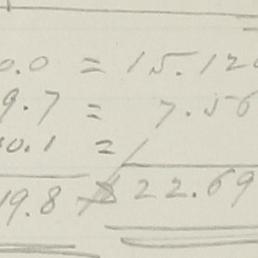 0.0 = 15.12
9.7 = 7.56
0.1 =
19.8 22.69